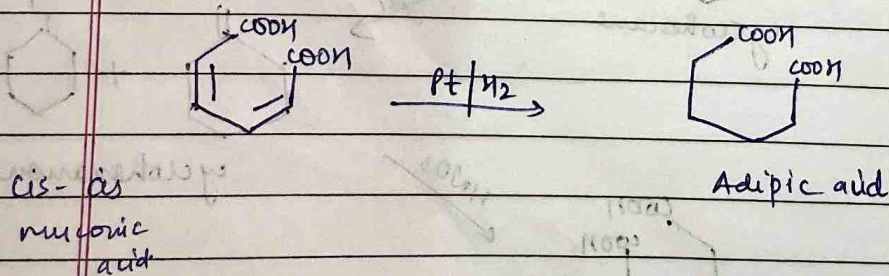 COOH
COOH
Pt/H2
COOH
COOH
cis-cis
muconic
acid
Adipic acid